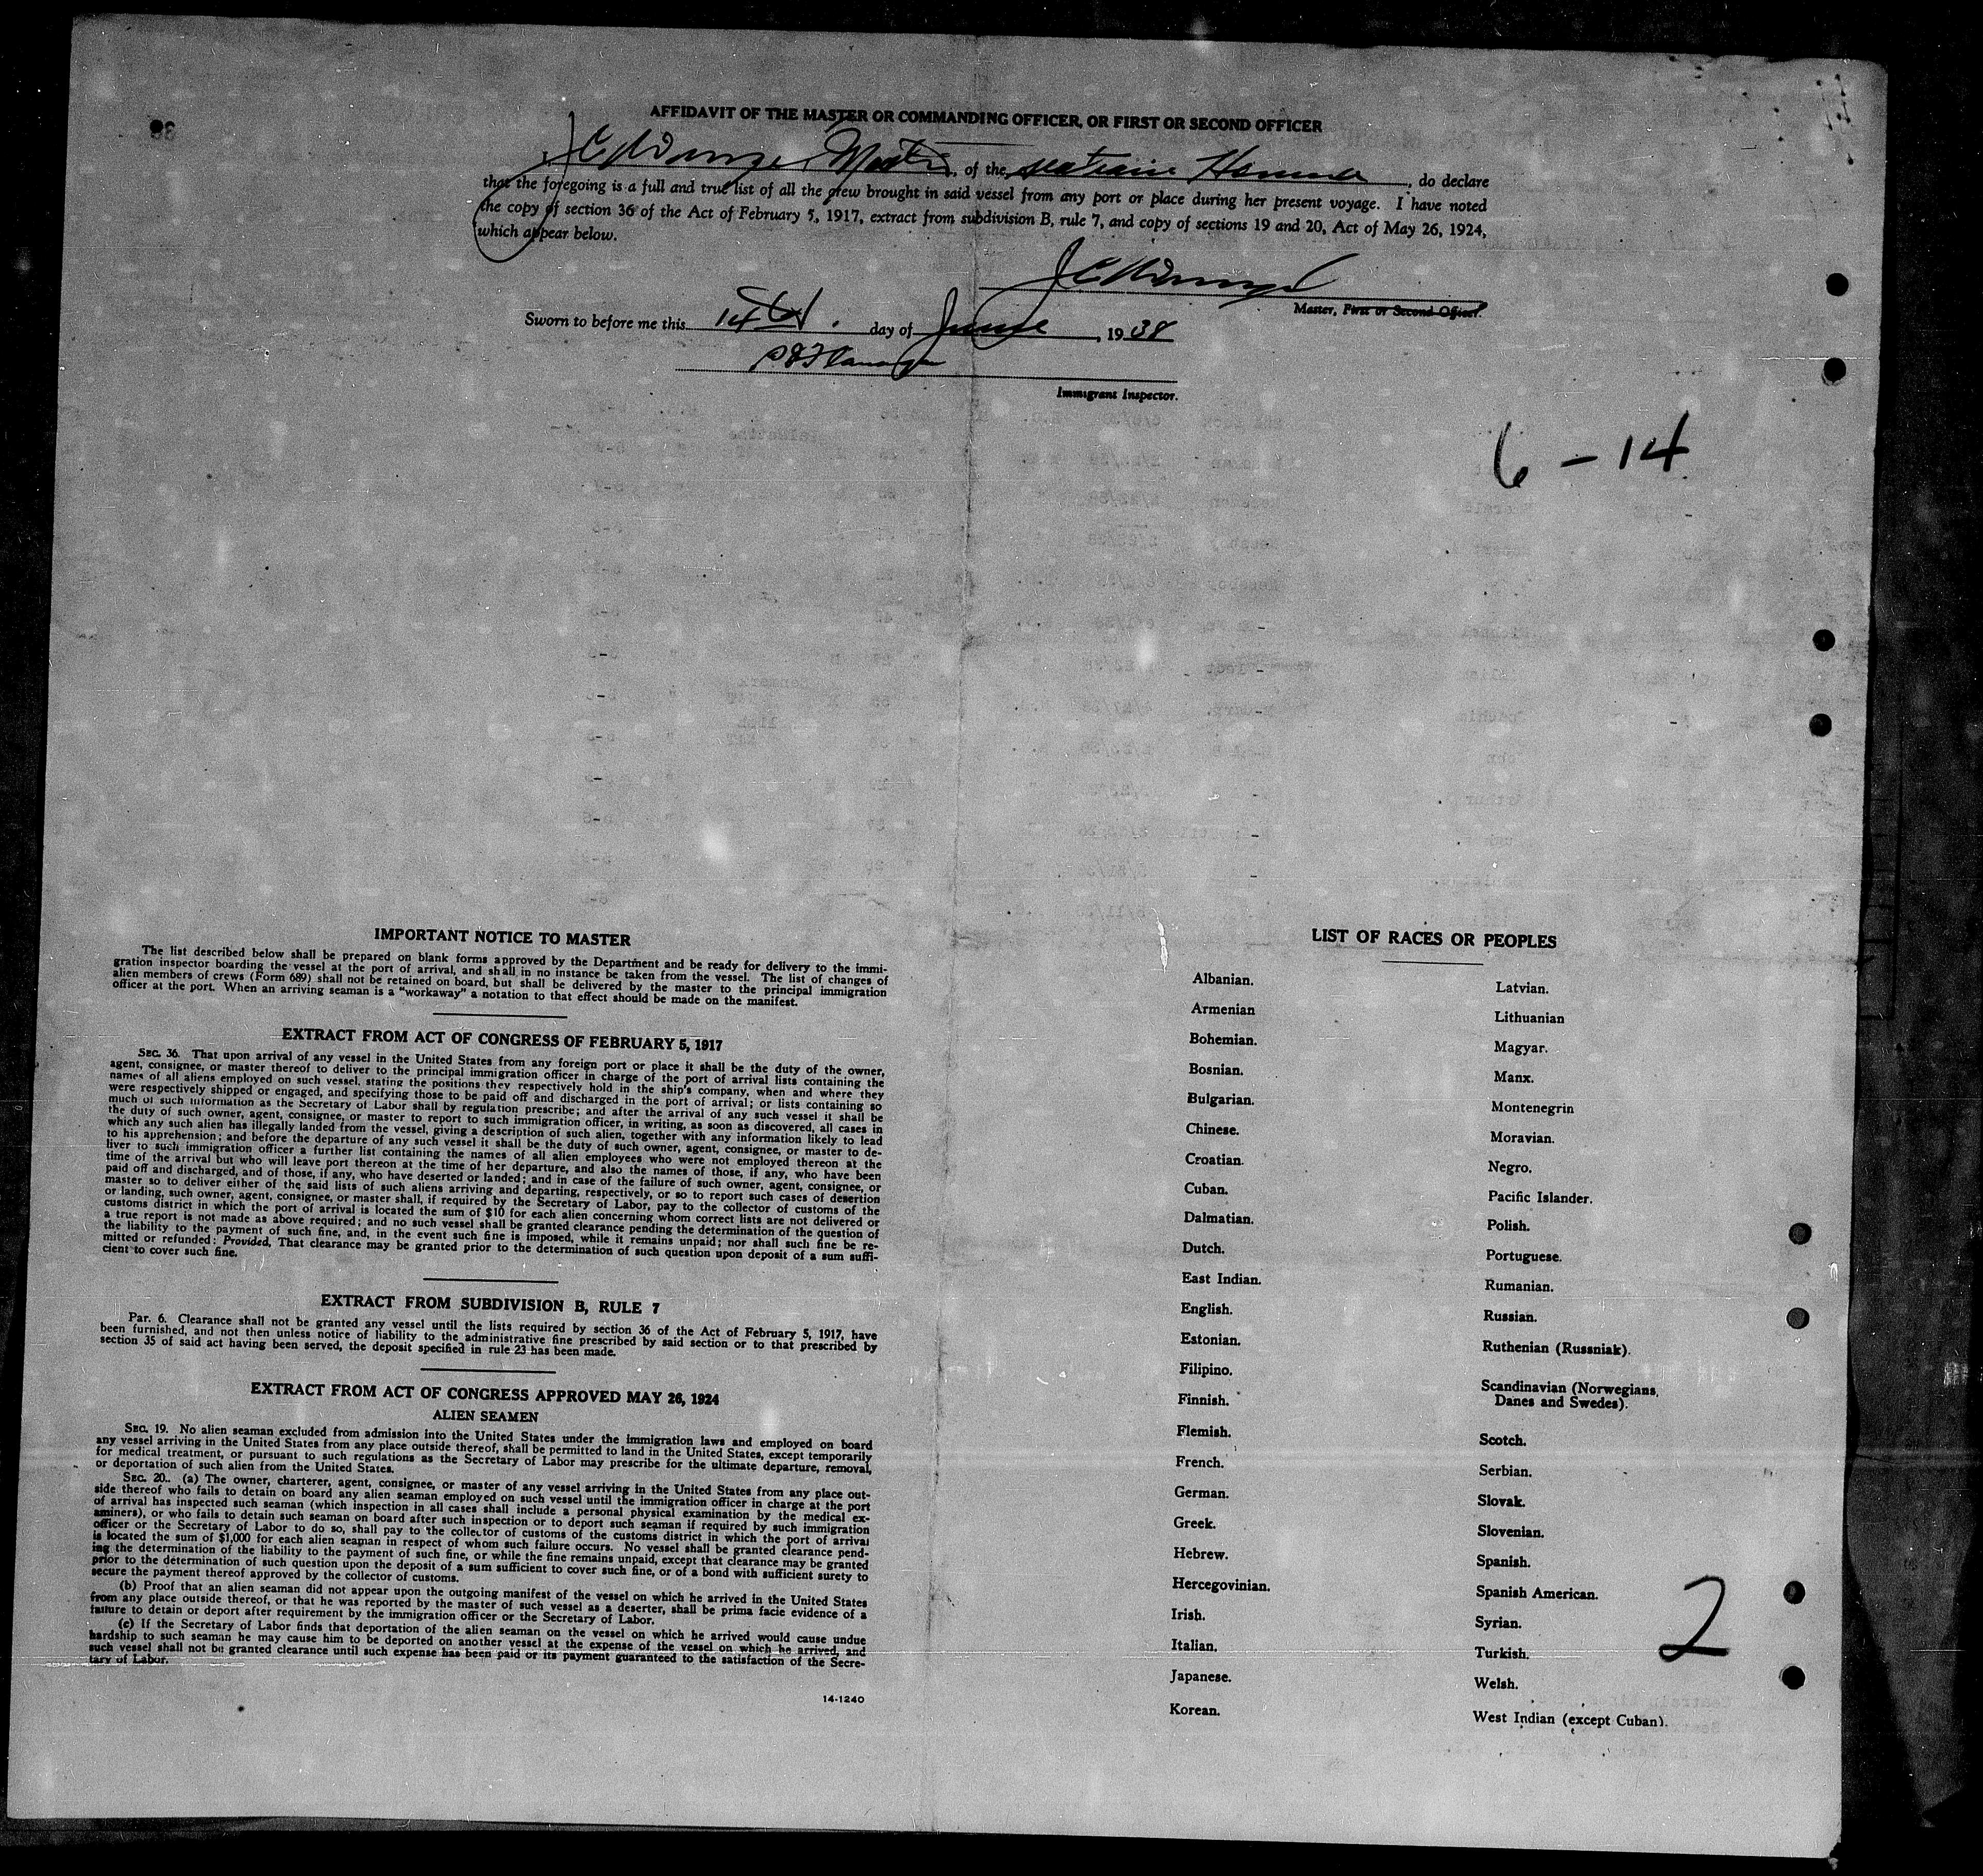 AFFIDAVIT OF THE MASTER OR COMMANDING OFFICER, OR FIRST OR SECOND OFFICER
Master, of the Seatrain Havana, do declare
that the foregoing is a full and true list of all the crew brought in said vessel from any port or place during her present voyage. I have noted
the copy of section 36 of the Act of February 5, 1917, extract from subdivision B, rule 7, and copy of sections 19 and 20, Act of May 26, 1924,
which appear below.
Master, First or Second Officer.
Sworn to before me this 14th. day of June, 1938
Immigrant Inspector.
6 - 14
IMPORTANT NOTICE TO MASTER
The list described below shall be prepared on blank forms approved by the Department and be ready for delivery to the immi-
gration inspector boarding the vessel at the port of arrival, and shall in no instance be taken from the vessel. The list of changes of
alien members of crews (Form 689) shall not be retained on board, but shall be delivered by the master to the principal immigration
officer at the port. When an arriving seaman is a "workaway" a notation to that effect should be made on the manifest.
EXTRACT FROM ACT OF CONGRESS OF FEBRUARY 5, 1917
SEC. 36. That upon arrival of any vessel in the United States from any foreign port or place it shall be the duty of the owner,
agent, consignee, or master thereof to deliver to the principal immigration officer in charge of the port of arrival lists containing the
names of all aliens employed on such vessel, stating the positions they respectively hold in the ship's company, when and where they
were respectively shipped or engaged, and specifying those to be paid off and discharged in the port of arrival; or lists containing so
much of such information as the Secretary of Labor shall by regulation prescribe; and after the arrival of any such vessel it shall be
the duty of such owner, agent, consignee, or master to report to such immigration officer, in writing, as soon as discovered, all cases in
which any such alien has illegally landed from the vessel, giving a description of such alien, together with any information likely to lead
to his apprehension; and before the departure of any such vessel it shall be the duty of such owner, agent, consignee, or master to de-
liver to such immigration officer a further list containing the names of all alien employees who were not employed thereon at the
time of the arrival but who will leave port thereon at the time of her departure, and also the names of those, if any, who have been
paid off and discharged, and of those, if any, who have deserted or landed; and in case of the failure of such owner, agent, consignee, or
master so to deliver either of the said lists of such aliens arriving and departing, respectively, or so to report such cases of desertion
or landing, such owner, agent, consignee, or master shall, if required by the Secretary of Labor, pay to the collector of customs of the
customs district in which the port of arrival is located the sum of $10 for each alien concerning whom correct lists are not delivered or
a true report is not made as above required; and no such vessel shall be granted clearance pending the determination of the question of
the liability to the payment of such fine, and, in the event such fine is imposed, while it remains unpaid; nor shall such fine be re-
mitted or refunded: Provided, That clearance may be granted prior to the determination of such question upon deposit of a sum suffi-
cient to cover such fine.
EXTRACT FROM SUBDIVISION B, RULE 7
Par. 6. Clearance shall not be granted any vessel until the lists required by section 36 of the Act of February 5, 1917, have
been furnished, and not then unless notice of liability to the administrative fine prescribed by said section or to that prescribed by
section 35 of said act having been served, the deposit specified in rule 23 has been made.
EXTRACT FROM ACT OF CONGRESS APPROVED MAY 26, 1924
ALIEN SEAMEN
SEC. 19. No alien seaman excluded from admission into the United States under the immigration laws and employed on board
any vessel arriving in the United States from any place outside thereof, shall be permitted to land in the United States, except temporarily
for medical treatment, or pursuant to such regulations as the Secretary of Labor may prescribe for the ultimate departure, removal,
or deportation of such alien from the United States.
SEC. 20. (a) The owner, charterer, agent, consignee, or master of any vessel arriving in the United States from any place out-
side thereof who fails to detain on board any alien seaman employed on such vessel until the immigration officer in charge at the port
of arrival has inspected such seaman (which inspection in all cases shall include a personal physical examination by the medical ex-
aminers), or who fails to detain such seaman on board after such inspection or to deport such seaman if required by such immigration
officer or the Secretary of Labor to do so, shall pay to the collector of customs of the customs district in which the port of arrival
is located the sum of $1,000 for each alien seaman in respect of whom such failure occurs. No vessel shall be granted clearance pend-
ing the determination of the liability to the payment of such fine, or while the fine remains unpaid, except that clearance may be granted
prior to the determination of such question upon the deposit of a sum sufficient to cover such fine, or of a bond with sufficient surety to
secure the payment thereof approved by the collector of customs.
(b) Proof that an alien seaman did not appear upon the outgoing manifest of the vessel on which he arrived in the United States
from any place outside thereof, or that he was reported by the master of such vessel as a deserter, shall be prima facie evidence of a
failure to detain or deport after requirement by the immigration officer or the Secretary of Labor.
(c) If the Secretary of Labor finds that deportation of the alien seaman on the vessel on which he arrived would cause undue
hardship to such seaman he may cause him to be deported on another vessel at the expense of the vessel on which he arrived, and
such vessel shall not be granted clearance until such expense has been paid or its payment guaranteed to the satisfaction of the Secre-
tary of Labor.
14-1240
LIST OF RACES OR PEOPLES
Albanian.
Armenian
Bohemian.
Bosnian.
Bulgarian.
Chinese.
Croatian.
Cuban.
Dalmatian.
Dutch.
East Indian.
English.
Estonian.
Filipino.
Finnish.
Flemish.
French.
German.
Greek.
Hebrew.
Hercegovinian.
Irish.
Italian.
Japanese.
Korean.
Latvian.
Lithuanian
Magyar.
Manx.
Montenegrin
Moravian.
Negro.
Pacific Islander.
Polish.
Portuguese.
Rumanian.
Russian.
Ruthenian (Russniak).
Scandinavian (Norwegians,
Danes and Swedes).
Scotch.
Serbian.
Slovak.
Slovenian.
Spanish.
Spanish American.
Syrian.
Turkish.
Welsh.
West Indian (except Cuban).
2